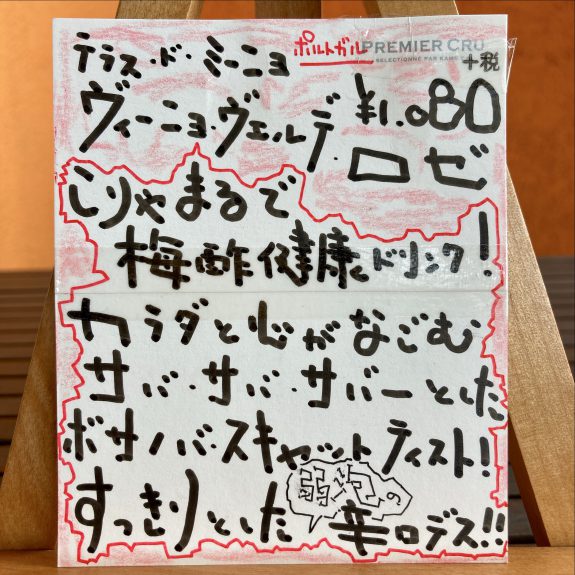 ポルトガル PREMIER CRU
SELECTIONNÉ PAR
テラス・ド・ミーニョ +税
ヴィーニョ・ヴェルデ・ ¥1.080
ロゼ
こりゃまるで
梅酢健康ドリンク!
カラダと心がなごむ
サバ・サバ・サバーとした
ボサノバ・スキャットティスト!
弱泡の
すっきりとした辛口デス!!